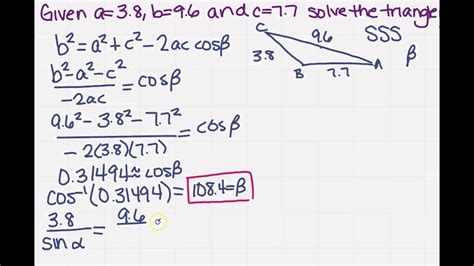 Given a=3.8, b=9.6 and c=7.7 solve the triangle
b² = a² + c² - 2ac cosβ
b² - a² - c² / -2ac = cosβ
9.6² - 3.8² - 7.7² / -2(3.8)(7.7) = cosβ
0.31494 ≈ cosβ
cos⁻¹(0.31494) = 108.4 = β
3.8 / sin α = 9.6
C
9.6
SSS
3.8
β
B
7.7
A